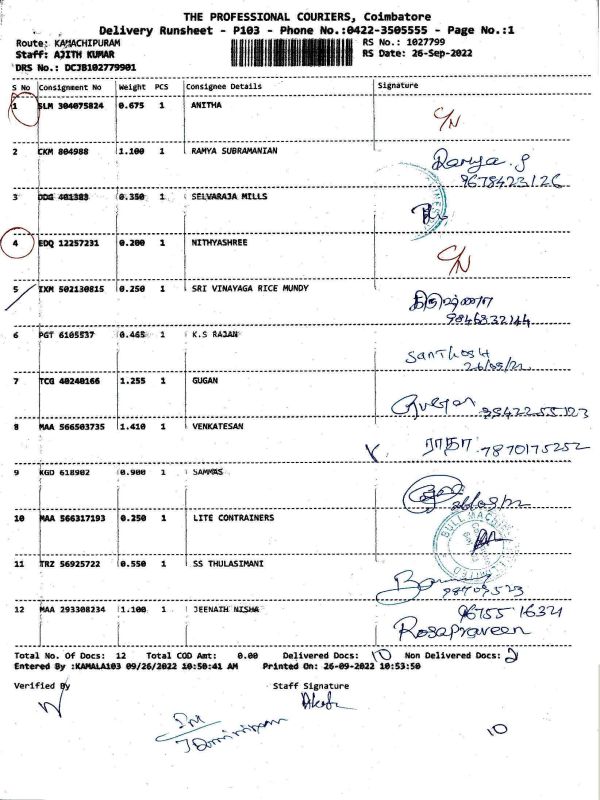 THE PROFESSIONAL COURIERS, Coimbatore
Delivery Runsheet - P103 - Phone No.:0422-3505555 - Page No.:1
Route: KAMACHIPURAM RS No.: 1027799
Staff: AJITH KUMAR RS Date: 26-Sep-2022
DRS No.: DCJB102779901
S No Consignment No Weight PCS Consignee Details Signature
1 SLM 304075824 0.675 1 ANITHA C/N
2 CKM 804988 1.100 1 RAMYA SUBRAMANIAN Ramya.S
9678423126
3 DDG 401383 0.350 1 SELVARAJA MILLS
4 EDQ 12257231 0.200 1 NITHYASHREE C/N
5 IXM 502130815 0.250 1 SRI VINAYAGA RICE MUNDY
9846832144
6 PGT 6105537 0.465 1 K.S RAJAN Santhosh
26/09/22
7 TCG 40240166 1.255 1 GUGAN
8 MAA 566503735 1.410 1 VENKATESAN ராதா 7870175252
9 KGD 618902 0.900 1 SAMMAS
10 MAA 566317193 0.250 1 LITE CONTRAINERS
BULL MACHINES
11 TRZ 56925722 0.550 1 SS THULASIMANI
12 MAA 293308234 1.100 1 JEENATH NISHA 96755 16321
Rosapraveen
Total No. Of Docs: 12 Total COD Amt: 0.00 Delivered Docs: 10 Non Delivered Docs: 2
Entered By :KAMALA103 09/26/2022 10:50:41 AM Printed On: 26-09-2022 10:53:50
Verified By Staff Signature
10